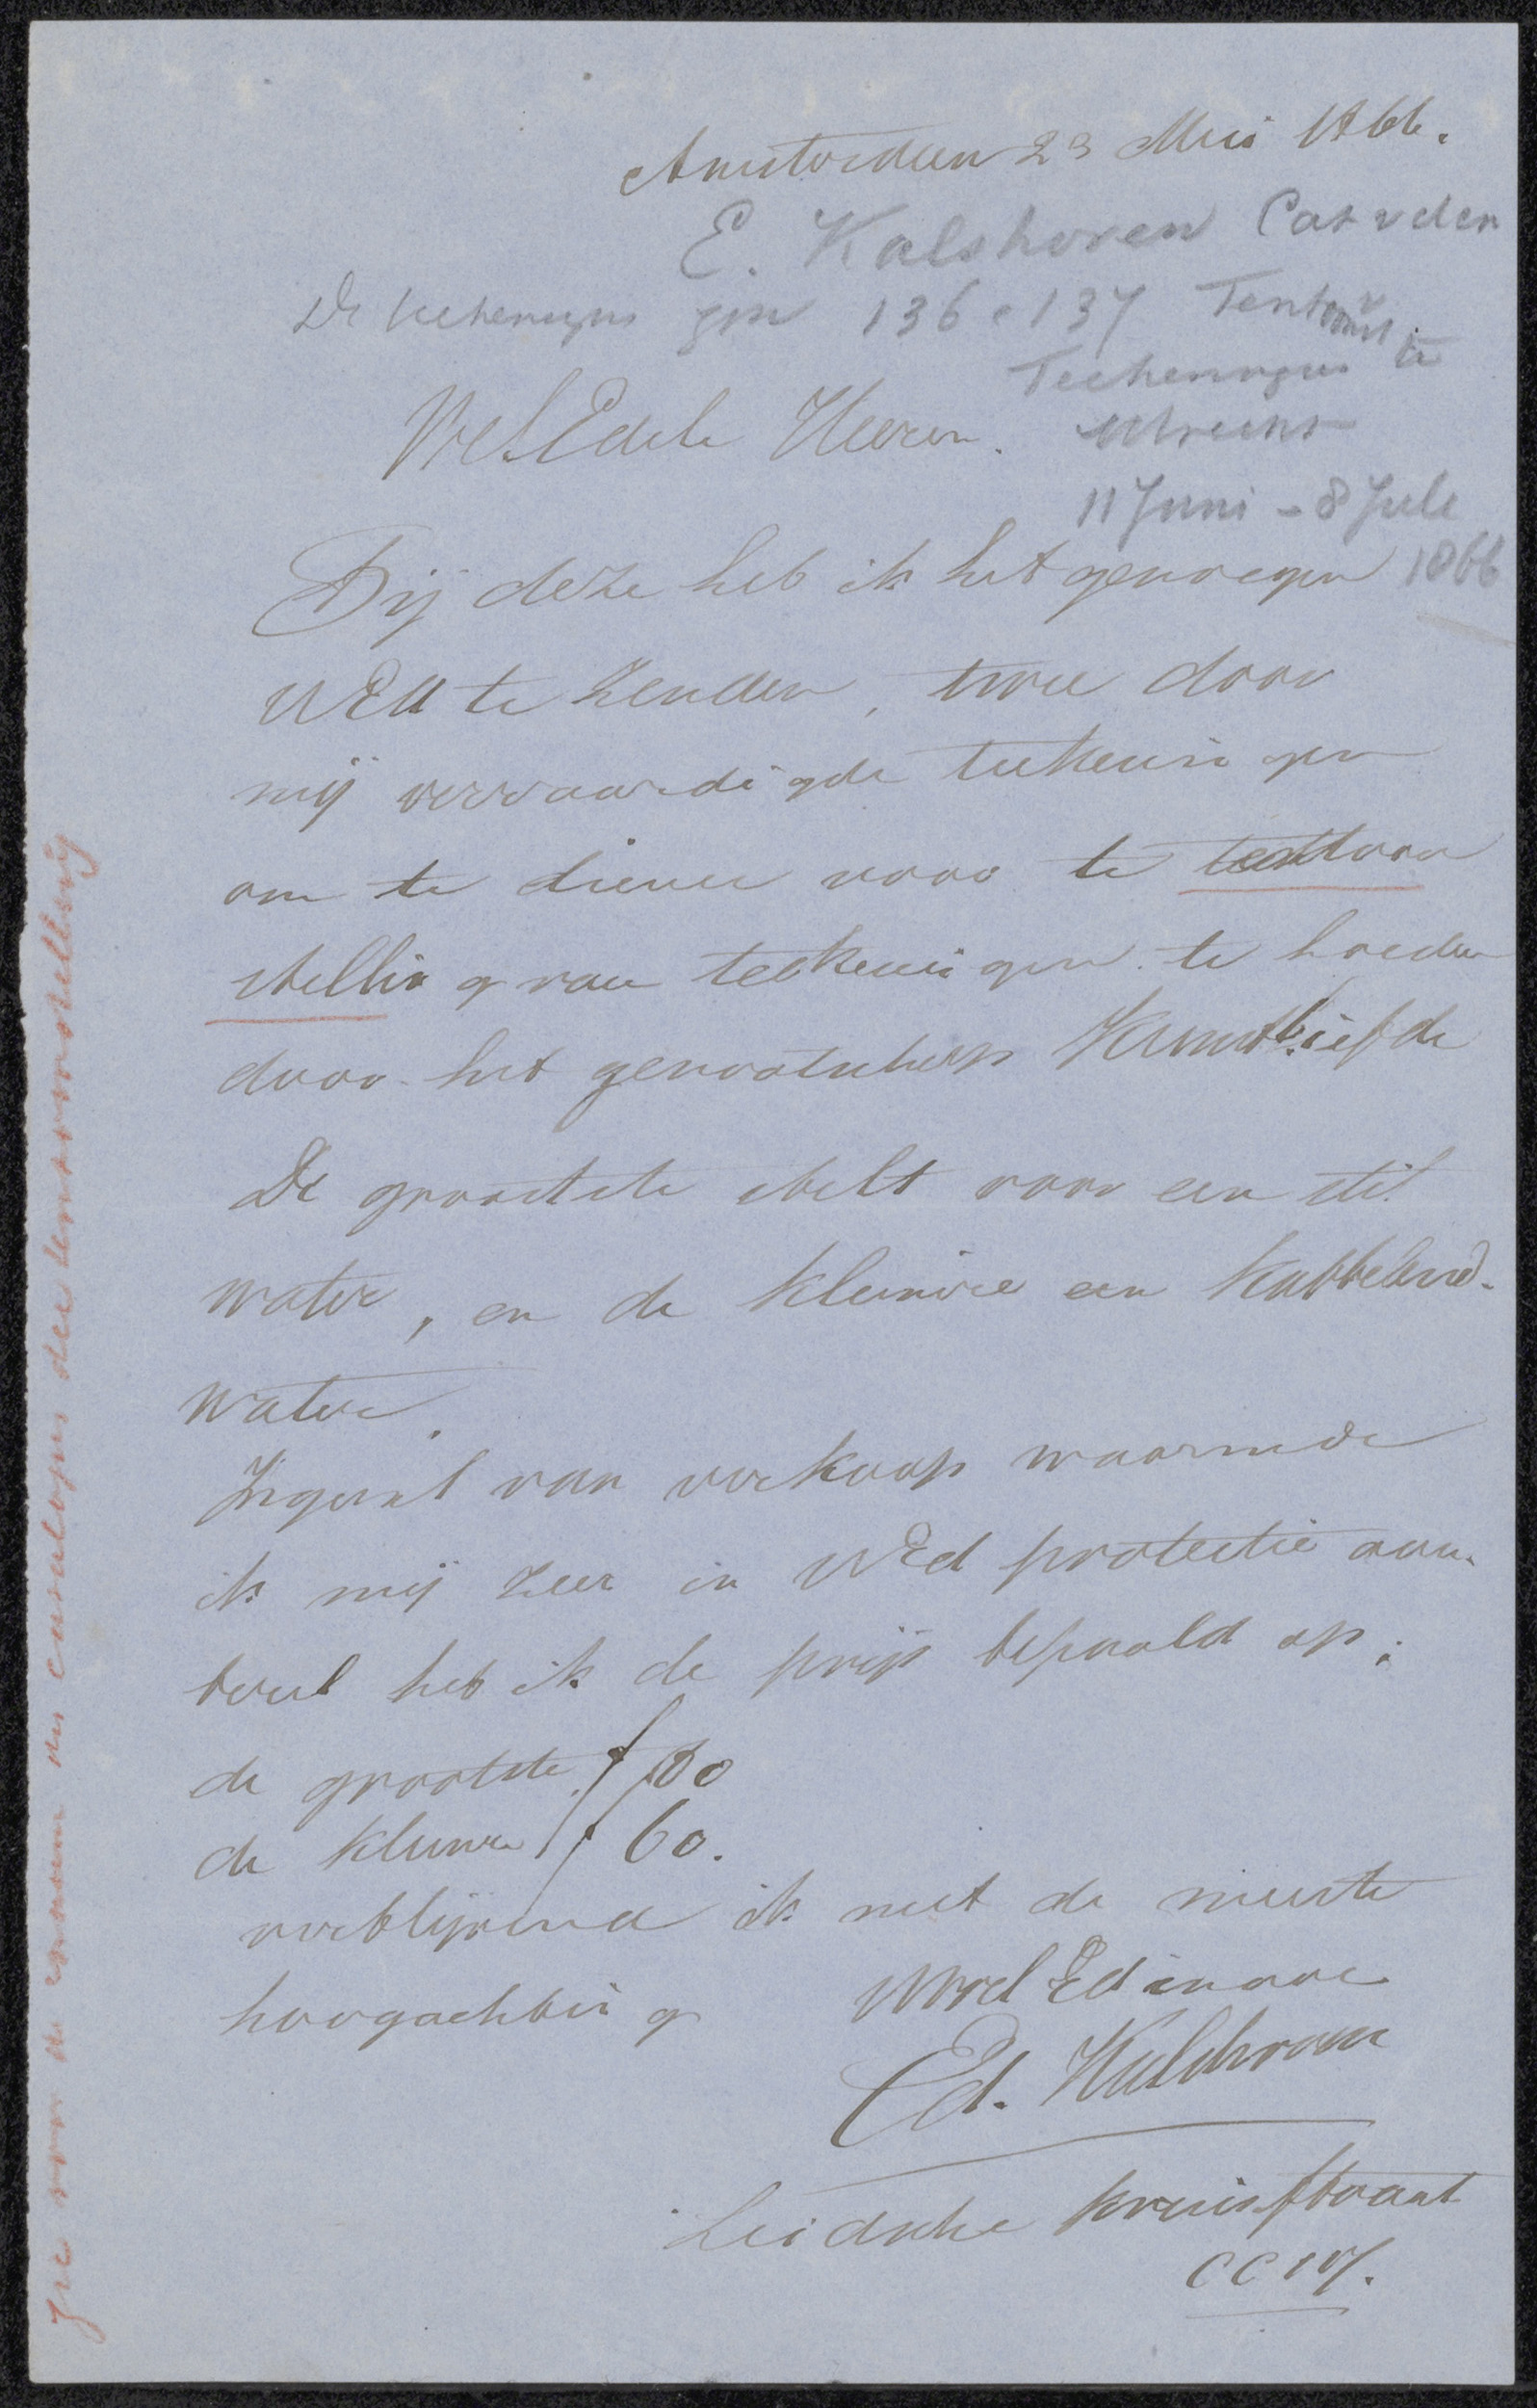 Amsterdam 23 Mei 1866.
E. Kalshoven Cat v den
De teekeningen zijn 136 e 137 Tentoonst v
Teekeningen te
Utrecht
WelEdele Heeren.
11 Juni - 8 Juli
1866
Bij deze heb ik het genoegen
UEd te zenden, twee door
mij vervaardigde teekeningen
om te dienen voor te tentoon
stelling van teekeningen te houden
door het genootschap Kunstliefde
De grootste stelt voor een stil
water, en de kleinere een kabbelend-
water.
Ingeval van verkoop waarmede
ik mij zeer in UEd protectie aan-
beveel heb ik de prijs bepaald op:
de grootste f 80
de kleinre f 60.
verblijvend ik met de meeste
hoogachting
WelEd dienaar
Ed. Kalshoven
Leidsche kruisstraat
CC
Zie voor de namen de catalogus der tentoonstelling